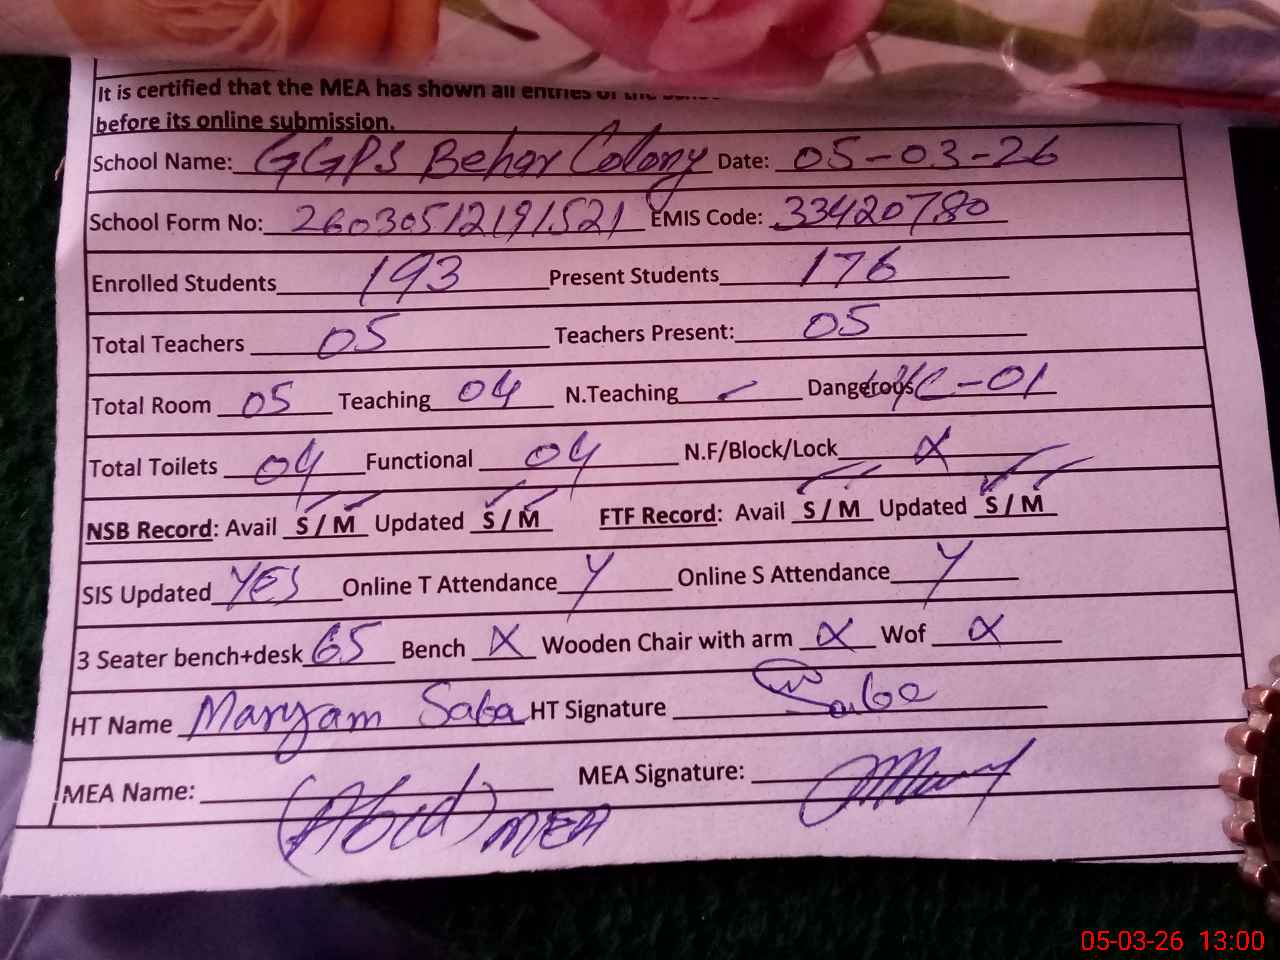 It is certified that the MEA has shown all entries of the
before its online submission.
School Name: GGPS Behar Colony Date: 05-03-26
School Form No: 26030512191521 EMIS Code: 33420780
Enrolled Students 193 Present Students 176
Total Teachers 05 Teachers Present: 05
Total Room 05 Teaching 04 N.Teaching - Dangerous U/C-01
Total Toilets 04 Functional 04 N.F/Block/Lock x
NSB Record: Avail S / M Updated S / M FTF Record: Avail S / M Updated S / M
SIS Updated YES Online T Attendance Y Online S Attendance Y
3 Seater bench+desk 65 Bench x Wooden Chair with arm x Wof x
HT Name Maryam Saba HT Signature Saba
MEA Name: MEA Signature:
MEA
05-03-26 13:00